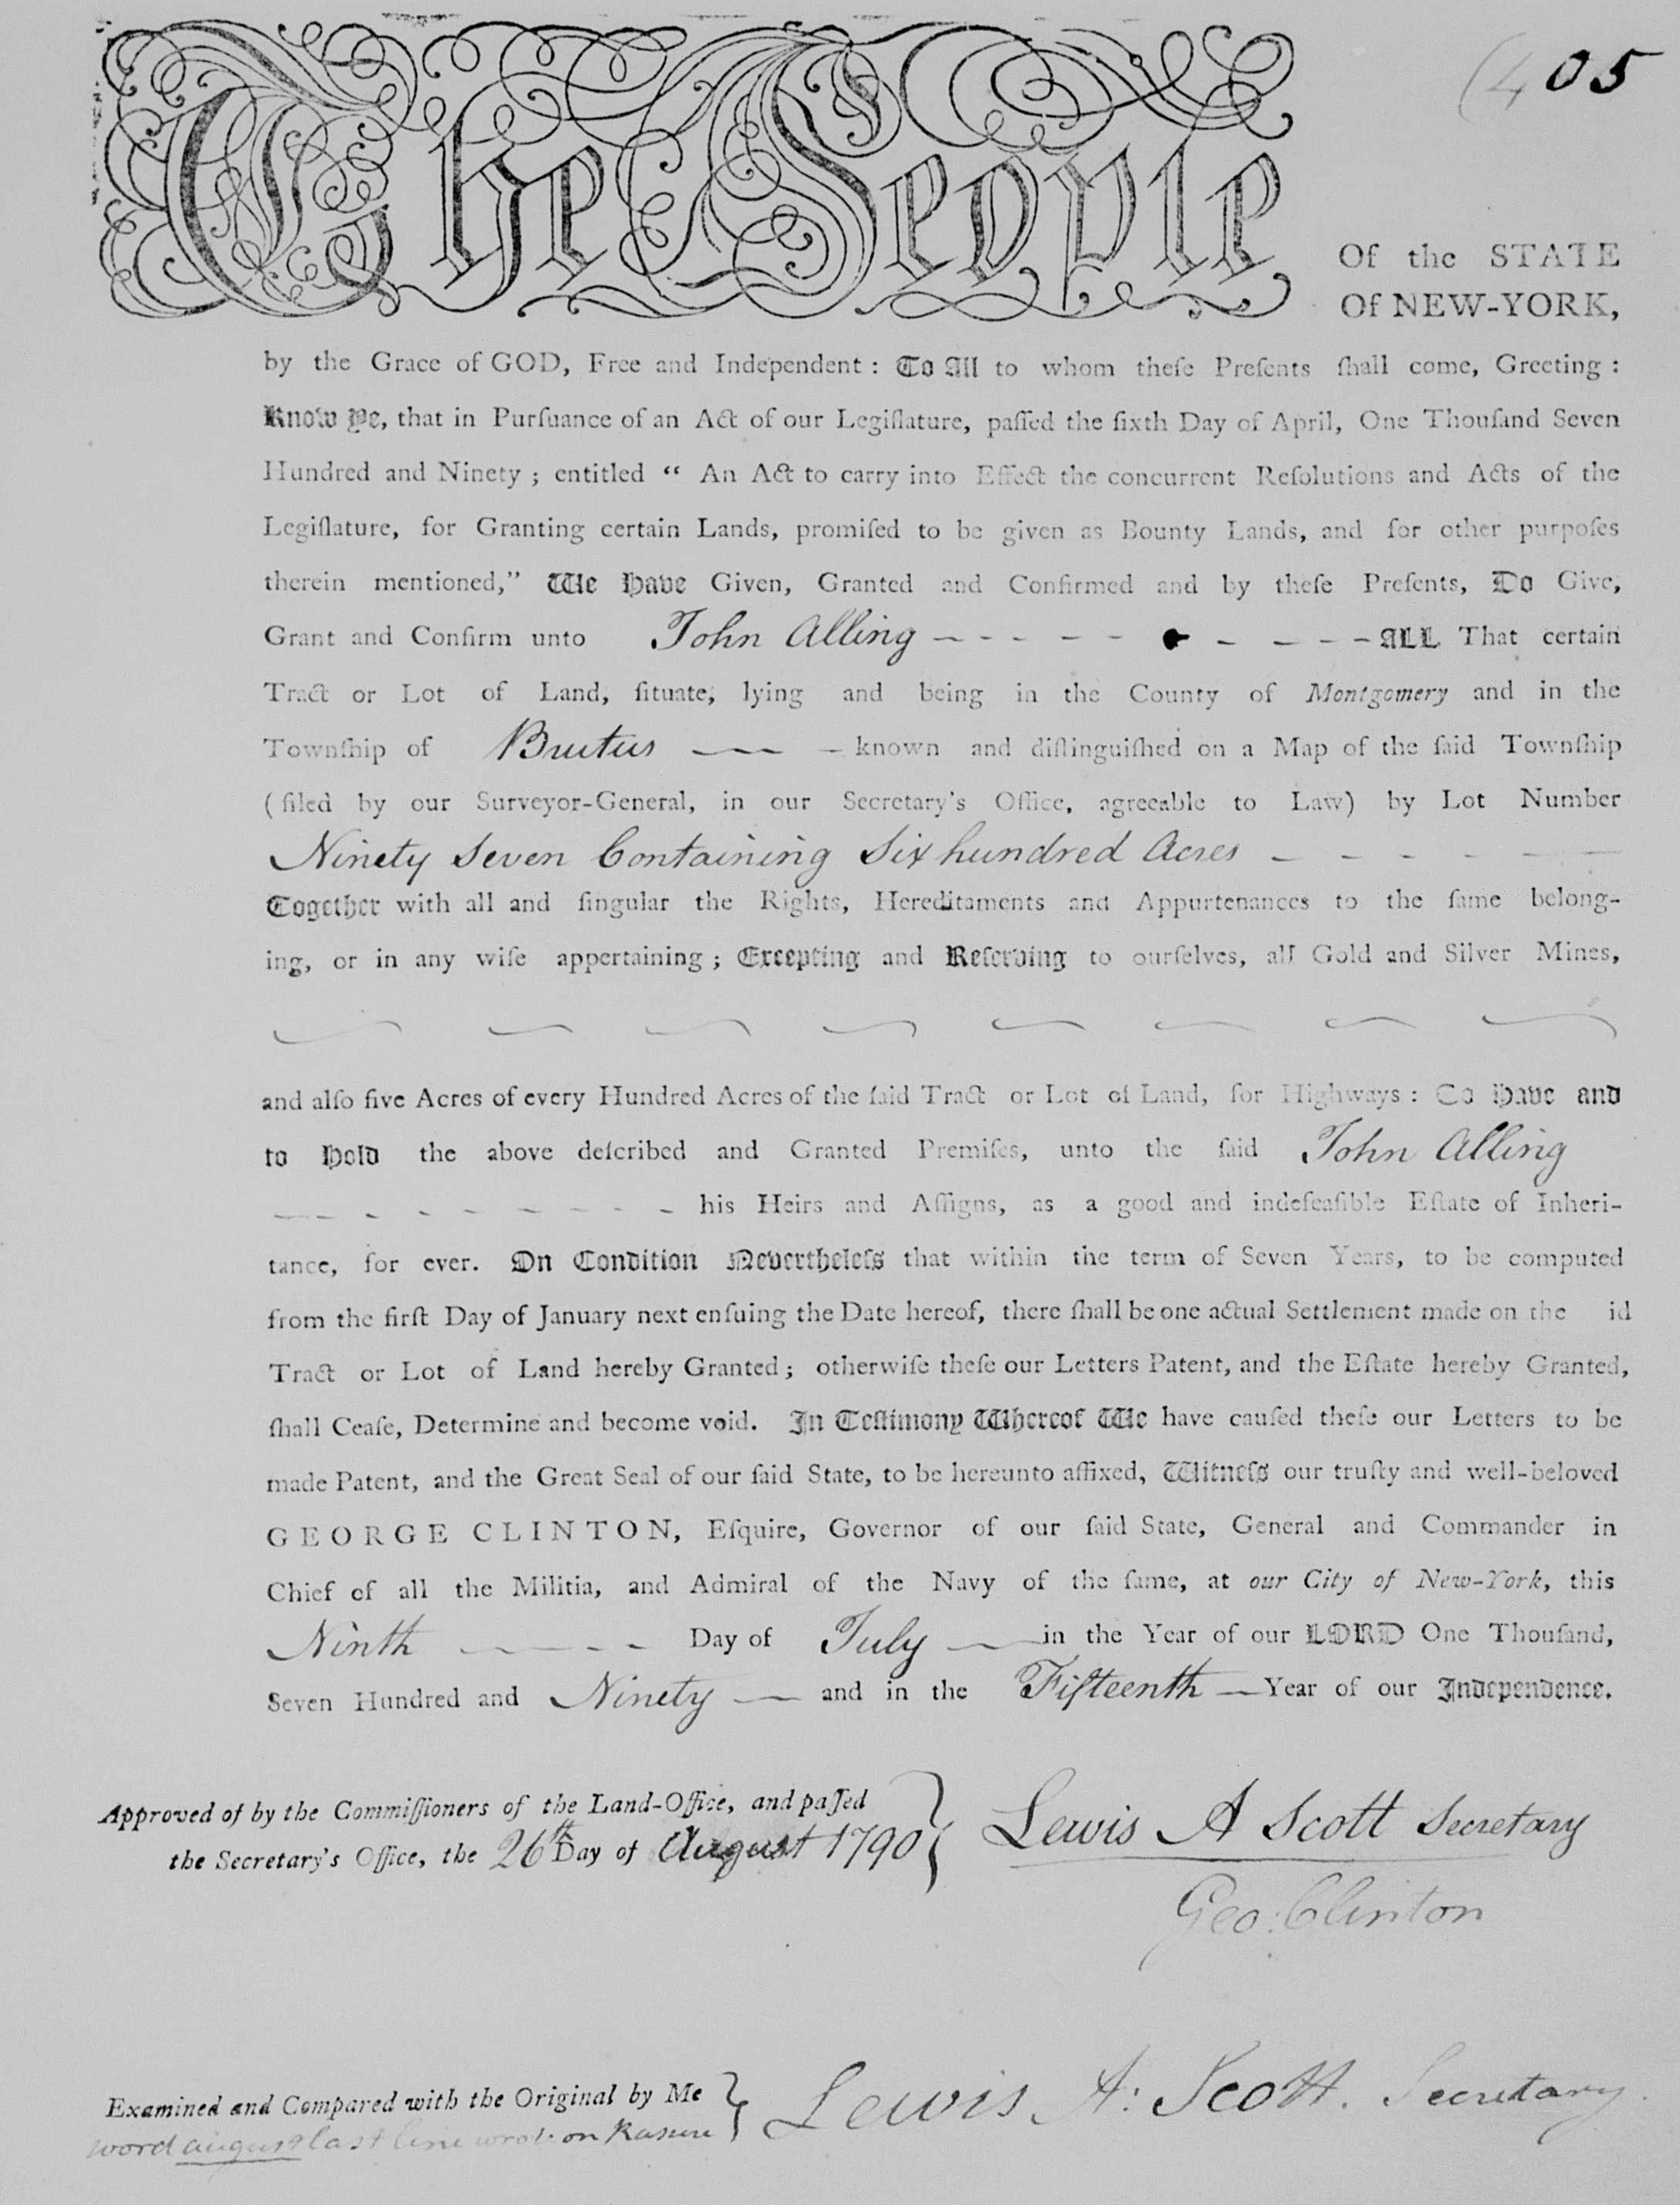 (405
The People
Of the STATE
Of NEW-YORK,
by the Grace of GOD, Free and Independent : To All to whom theſe Preſents ſhall come, Greeting :
Know Ye, that in Purſuance of an Act of our Legiſlature, paſſed the ſixth Day of April, One Thouſand Seven
Hundred and Ninety ; entitled “ An Act to carry into Effect the concurrent Reſolutions and Acts of the
Legiſlature, for Granting certain Lands, promiſed to be given as Bounty Lands, and for other purpoſes
therein mentioned,” We Have Given, Granted and Confirmed and by theſe Preſents, Do Give,
Grant and Confirm unto John Alling - - - - - - - - - - ALL That certain
Tract or Lot of Land, ſituate, lying and being in the County of Montgomery and in the
Townſhip of Brutus — — - known and diſtinguiſhed on a Map of the ſaid Townſhip
( filed by our Surveyor-General, in our Secretary's Office, agreeable to Law) by Lot Number
Ninety Seven Containing Six hundred Acres - - - - - - -
Together with all and ſingular the Rights, Hereditaments and Appurtenances to the ſame belong-
ing, or in any wiſe appertaining ; Excepting and Reſerving to ourſelves, all Gold and Silver Mines,
and alſo five Acres of every Hundred Acres of the ſaid Tract or Lot of Land, for Highways : To Have and
to Hold the above deſcribed and Granted Premiſes, unto the ſaid John Alling
- - - - - - - - - - his Heirs and Aſſigns, as a good and indefeaſible Eſtate of Inheri-
tance, for ever. On Condition Nevertheleſs that within the term of Seven Years, to be computed
from the firſt Day of January next enſuing the Date hereof, there ſhall be one actual Settlement made on the id
Tract or Lot of Land hereby Granted ; otherwiſe theſe our Letters Patent, and the Eſtate hereby Granted,
ſhall Ceaſe, Determine and become void. In Teſtimony Whereof We have cauſed theſe our Letters to be
made Patent, and the Great Seal of our ſaid State, to be hereunto affixed, Witneſs our truſty and well-beloved
GEORGE CLINTON, Eſquire, Governor of our ſaid State, General and Commander in
Chief of all the Militia, and Admiral of the Navy of the ſame, at our City of New-York, this
Ninth - - - - Day of July — in the Year of our LORD One Thouſand,
Seven Hundred and Ninety — and in the Fifteenth — Year of our Independence.
Approved of by the Commiſſioners of the Land-Office, and paſſed
the Secretary's Office, the 26th Day of August 1790
Lewis A Scott Secretary
Geo: Clinton
Examined and Compared with the Original by Me
word august last line wrot. on Rasure
Lewis A: Scott. Secretary.